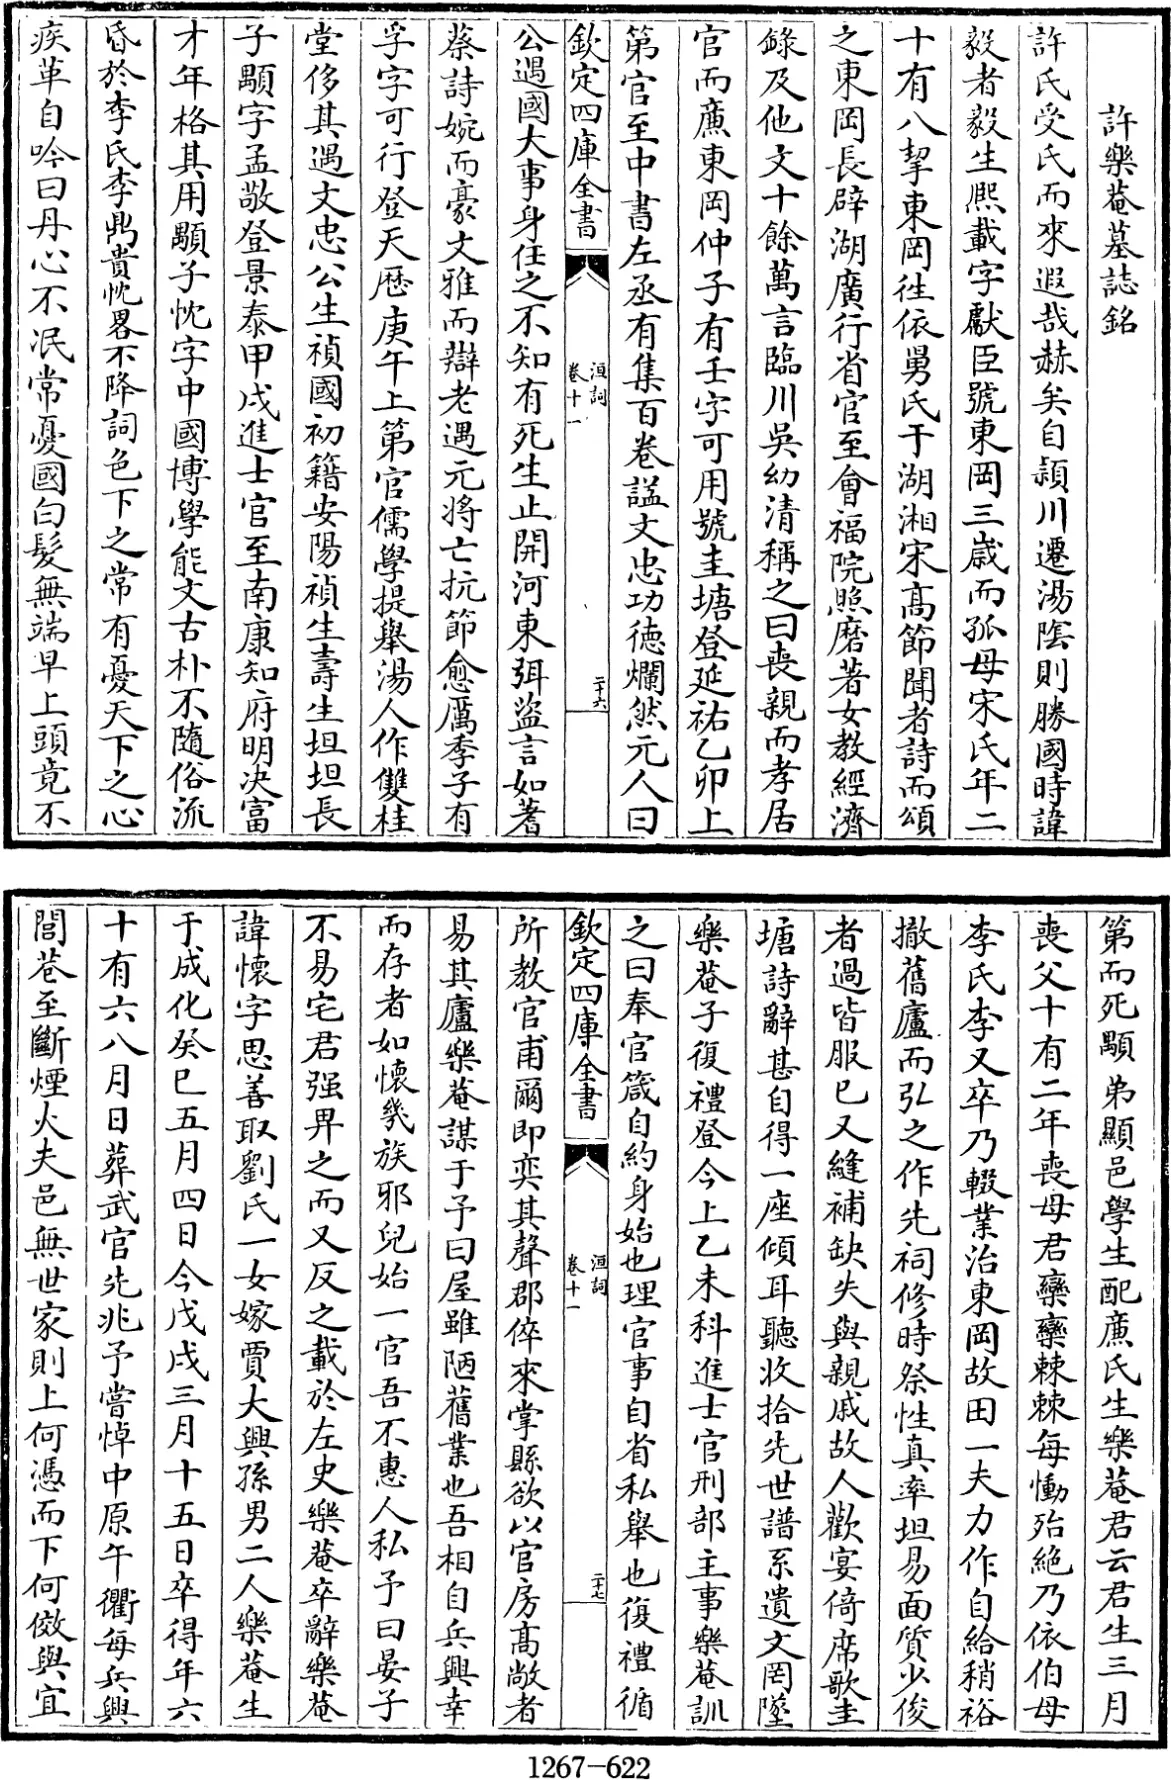 許樂菴墓誌銘
許氏受氏而來遐哉赫矣自頴川遷湯隂則勝國時諱
毅者毅生熈載字獻臣號東岡三歳而孤母宋氏年二
十有八挈東岡往依舅氏于湖湘宋髙節聞者詩而頌
之東岡長辟湖廣行省官至會福院照磨著女教經濟
錄及他文十餘萬言臨川吳幼清稱之曰喪親而孝居
官而亷東岡仲子有壬字可用號圭塘登延祐乙卯上
第官至中書左丞有集百卷謚文忠功徳爛然元人曰
欽定四庫全書
洹詞
卷十一
二十六
公遇國大事身任之不知有死生止開河東弭盜言如蓍
蔡詩婉而豪文雅而辯老遇元将亡抗節愈厲季子有
孚字可行登天厯庚午上第官儒學提舉湯人作雙桂
堂侈其遇文忠公生禎國初籍安陽禎生壽生坦坦長
子顒字孟敬登景泰甲戌進士官至南康知府明决富
才年格其用顒子忱字中國博學能文古朴不隨俗流
昏於李氏李鼎貴忱畧不降詞色下之常有憂天下之心
疾革自吟曰丹心不泯常憂國白髮無端早上頭竟不
第而死顒弟顯邑學生配亷氏生樂菴君云君生三月
喪父十有二年喪母君欒欒棘棘每慟殆絶乃依伯母
李氏李又卒乃輟業治東岡故田一夫力作自給稍裕
撤舊廬而弘之作先祠修時祭性真率坦易面質少俊
者過皆服已又縫補缺失與親戚故人歡宴倚席歌圭
塘詩辭甚自得一座傾耳聽收拾先世譜系遺文罔墜
樂菴子復禮登今上乙未科進士官刑部主事樂菴訓
之曰奉官箴自約身始也理官事自省私舉也復禮循
欽定四庫全書
洹詞
卷十一
二十七
所教官甫爾即奕其聲郡倅來掌縣欲以官房髙敞者
易其廬樂菴謀于予曰屋雖陋舊業也吾相自兵興幸
而存者如懷㡬族邪兒始一官吾不惠人私予曰晏子
不易宅君强畀之而又反之載於左史樂菴卒辭樂菴
諱懷字思善取劉氏一女嫁賈大興孫男二人樂菴生
于成化癸巳五月四日今戊戌三月十五日卒得年六
十有六八月日葬武官先兆予嘗悼中原午衢每兵興
閭巷至斷煙火夫邑無世家則上何憑而下何傚與宜
1267-622